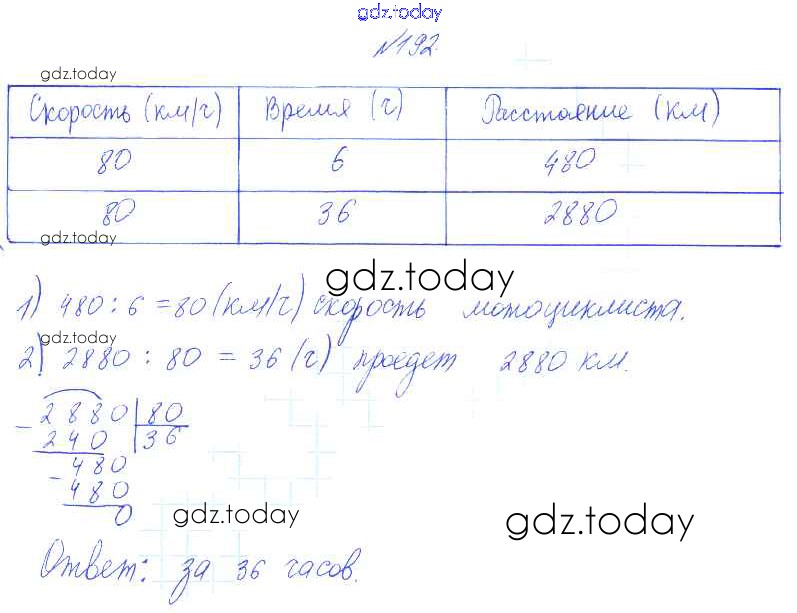 gdz.today
№192.
gdz.today
Скорость (км/ч) Время (ч) Расстояние (км)
80 6 480
80 36 2880
gdz.today
gdz.today
1) 480 : 6 = 80 (км/ч) скорость мотоциклиста.
gdz.today
2) 2880 : 80 = 36 (ч) проедет 2880 км.
- 2880 80
240 36
- 480
480
0
gdz.today
gdz.today
Ответ: за 36 часов.